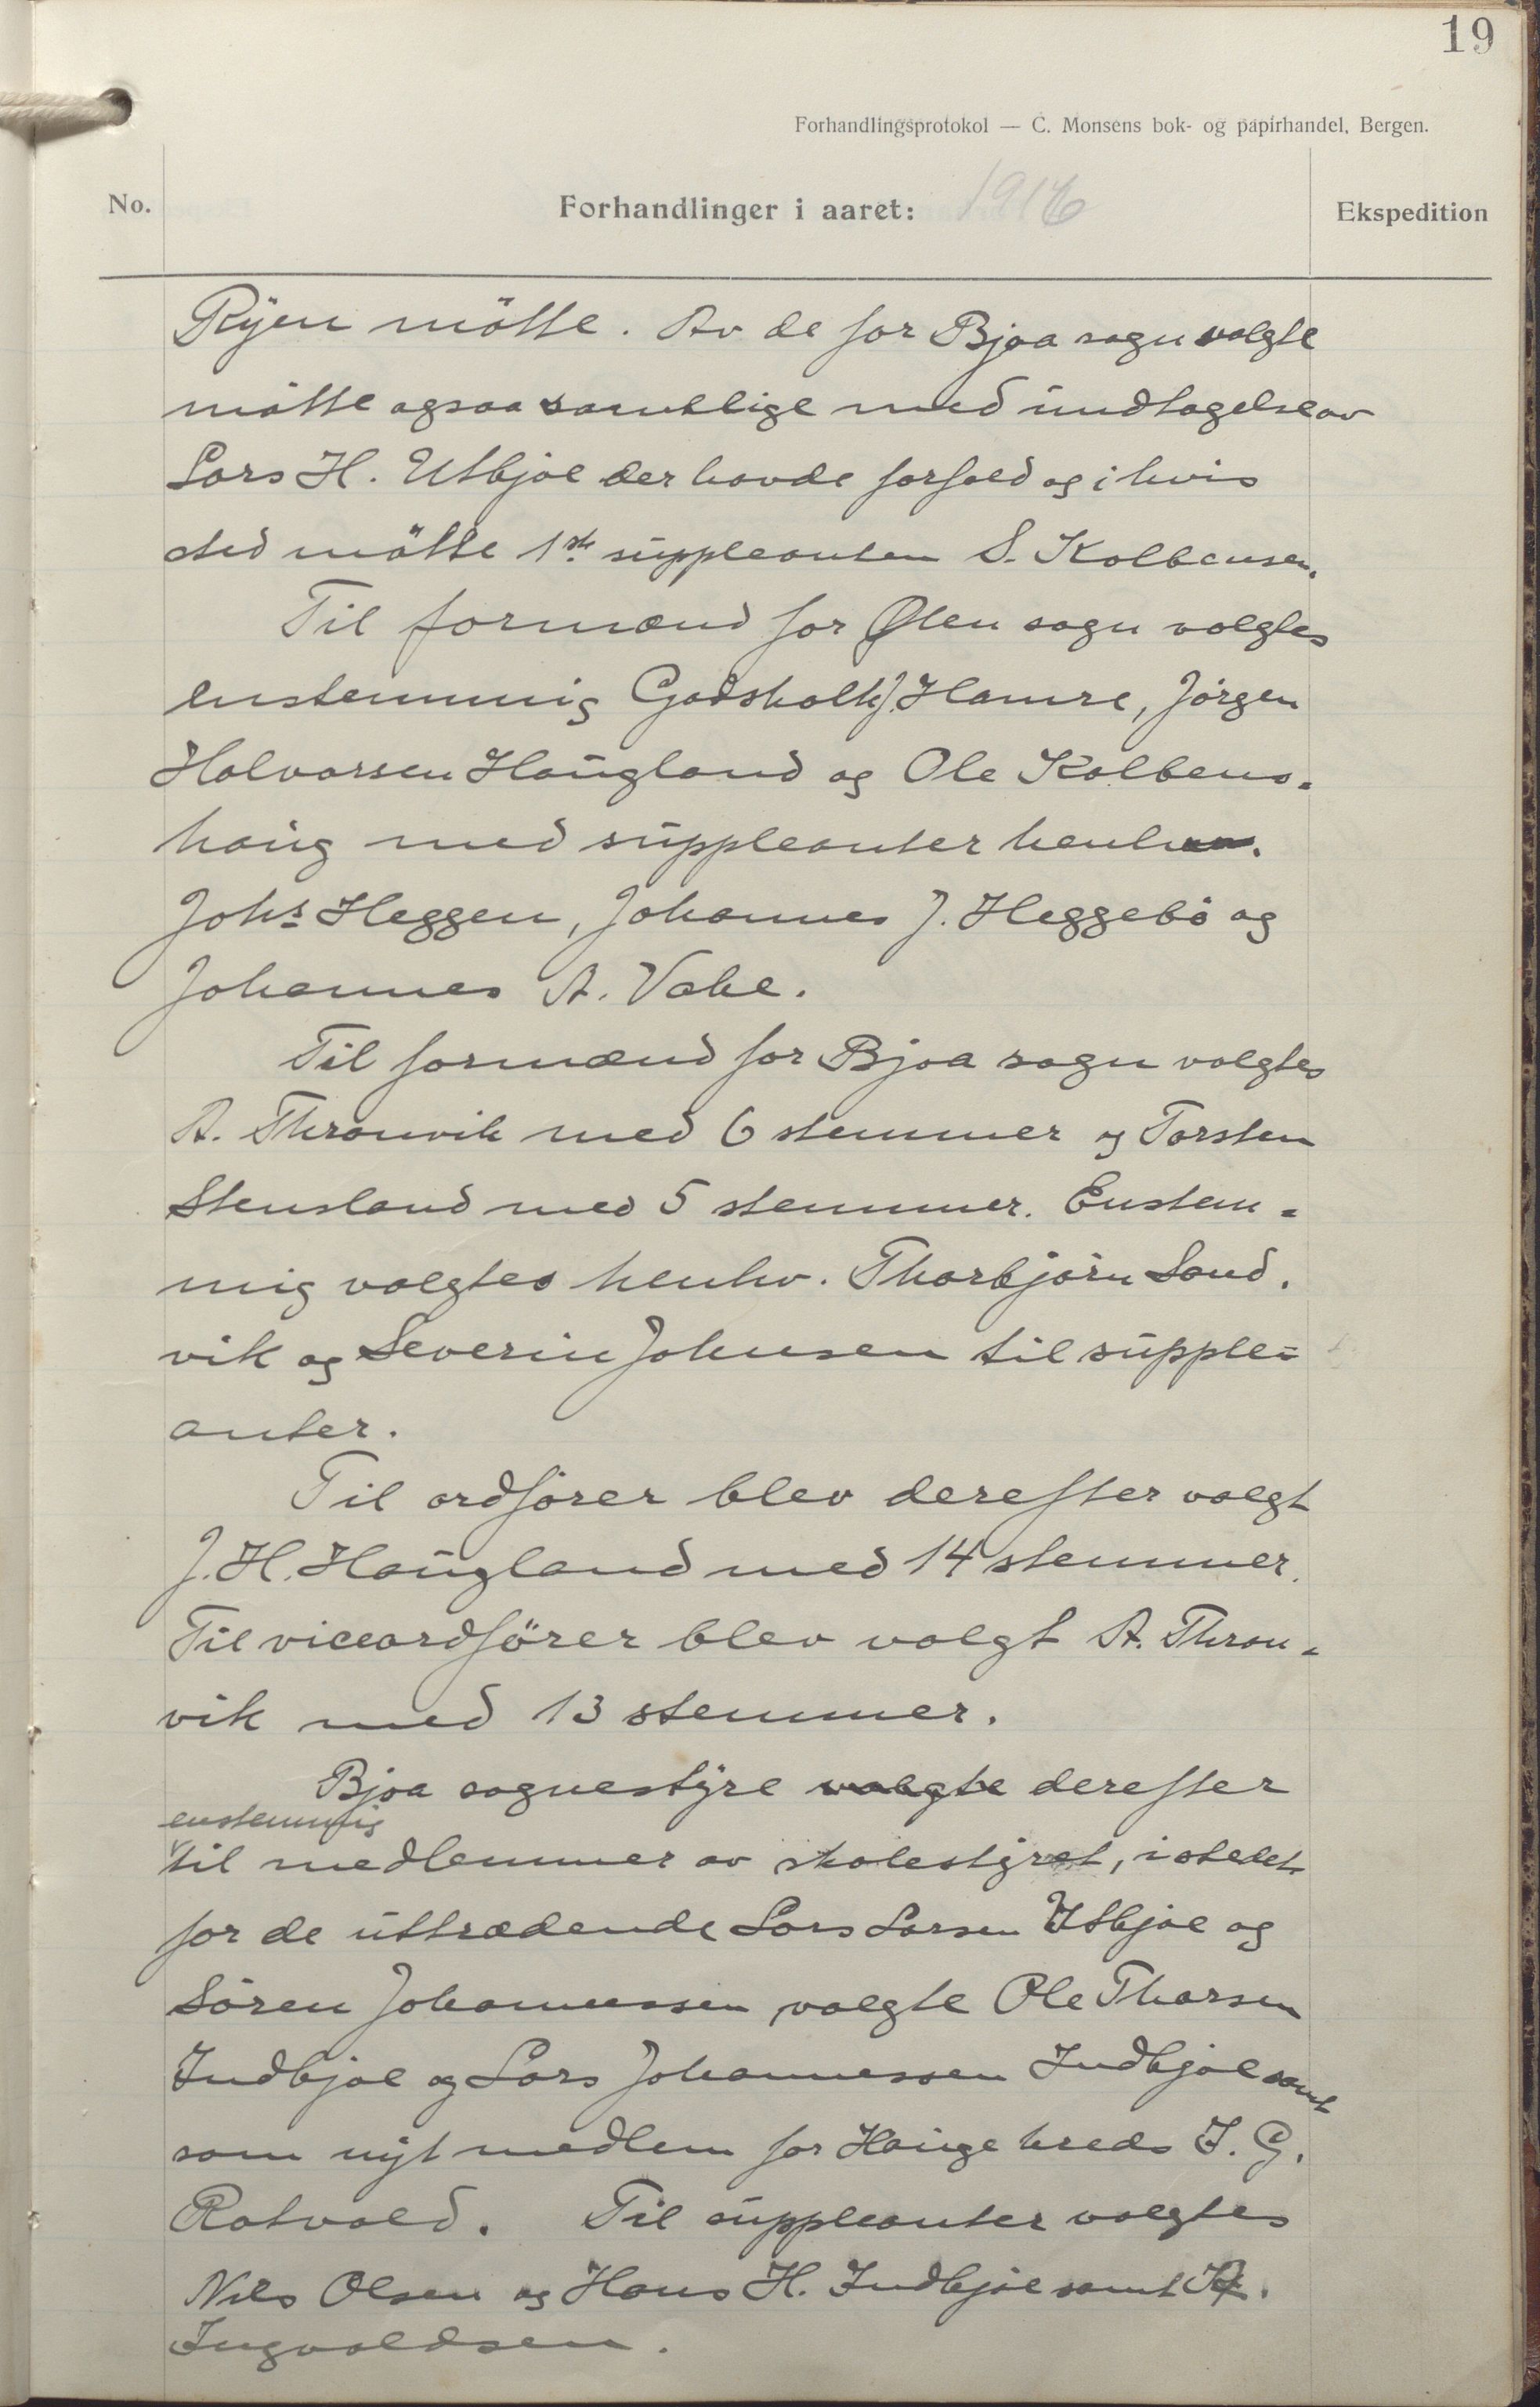 19
Forhandlingsprotokol — C. Monsens bok- og papirhandel, Bergen.
No.
Forhandlinger i aaret: 1916
Ekspedition
Ryen mötte. Av de for Bjoa sogn valgte
mötte ogsaa samtlige med undtagelse av
Lars H. Utbjoe der havde forfald og i hvis
sted mötte 1ste suppleanten S. Kolbensen.
Til formænd for Ølen sogn valgtes
enstemmig Godskalk J. Hamre, Jörgen
Halvorsen Haugland og Ole Kolbens-
haug med suppleanter henhv.
Johs Heggen, Johannes J. Heggebö og
Johannes A. Vake.
Til formænd for Bjoa sogn valgtes
A. Thronvik med 6 stemmer og Torsten
Stensland med 5 stemmer. Enstem-
mig valgtes henhv. Thorbjörn Sand.
vik og Severin Johnsen til supple-
anter.
Til ordförer blev derefter valgt
J. H. Haugland med 14 stemmer.
Til viceordförer blev valgt A. Thron-
vik med 13 stemmer.
Bjoa sognestyre valgte derefter
enstemmig
til medlemmer av skolestyret, istedet
for de uttrædende Lars Larsen Utbjoe og
Sören Johannessen valgte Ole Thorsen
Indbjoe og Lars Johannessen Indbjoe samt
som nyt medlem for Hauge kreds I. G.
Rotvold. Til suppleanter valgtes
Nils Olsen og Hans H. Indbjoe samt
Ingvaldsen.